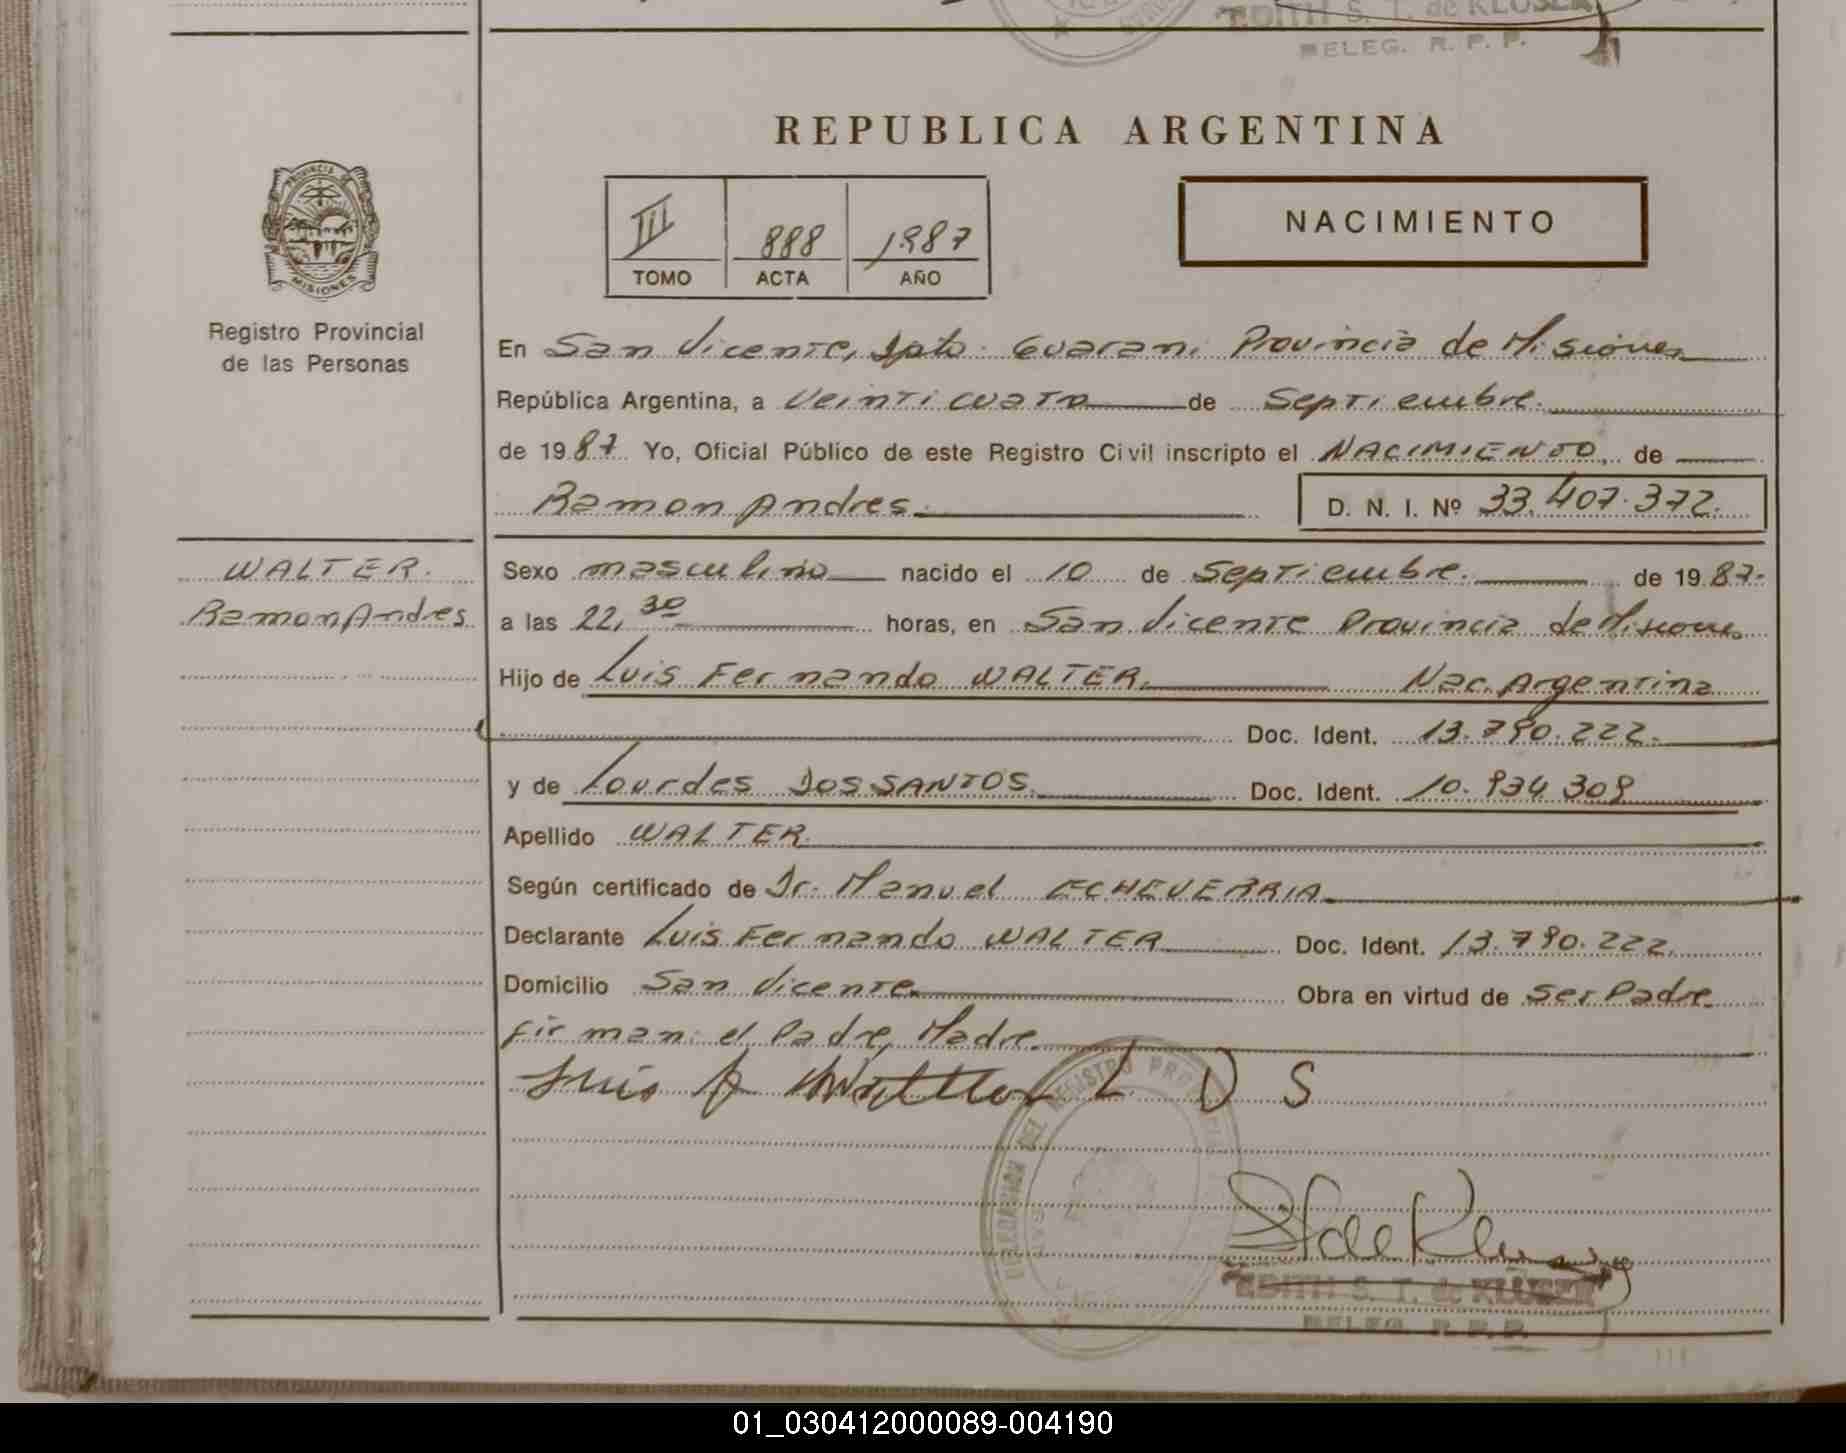 EDITH S. T. de KLUSER
DELEG. R. P. P.
REPUBLICA ARGENTINA
PROVINCIA DE
MISIONES
Registro Provincial
de las Personas
III 888 1987
TOMO ACTA AÑO
NACIMIENTO
En San Vicente, Dpto. Guarani Provincia de Misiones
República Argentina, a Veinticuatro de Septiembre.
de 1987 Yo, Oficial Público de este Registro Civil inscripto el NACIMIENTO, de
Ramon Andres. D. N. I. Nº 33.407.372.
WALTER.
Ramon Andres
Sexo masculino nacido el 10 de Septiembre. de 1987.
a las 22,30 horas, en San Vicente Provincia de Misiones
Hijo de Luis Fernando WALTER. Nac. Argentina
Doc. Ident. 13.790.222.
y de Lourdes DOS SANTOS. Doc. Ident. 10.934.309
Apellido WALTER.
Según certificado de Dr. Manuel ECHEVERRIA
Declarante Luis Fernando WALTER Doc. Ident. 13.790.222.
Domicilio San Vicente. Obra en virtud de ser Padre
Firman: el Padre, Madre.
Luis F Walter L D S
DELEGACION DEL REGISTRO PROVINCIAL
EDITH S. T. de KLUSER
DELEG. R. P. P.
01_030412000089-004190